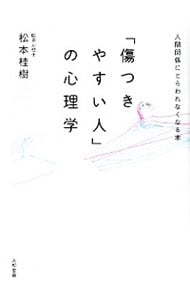 人間関係にとらわれなくなる本
「傷つき
やすい人」
の心理学
松本桂樹
大和書房